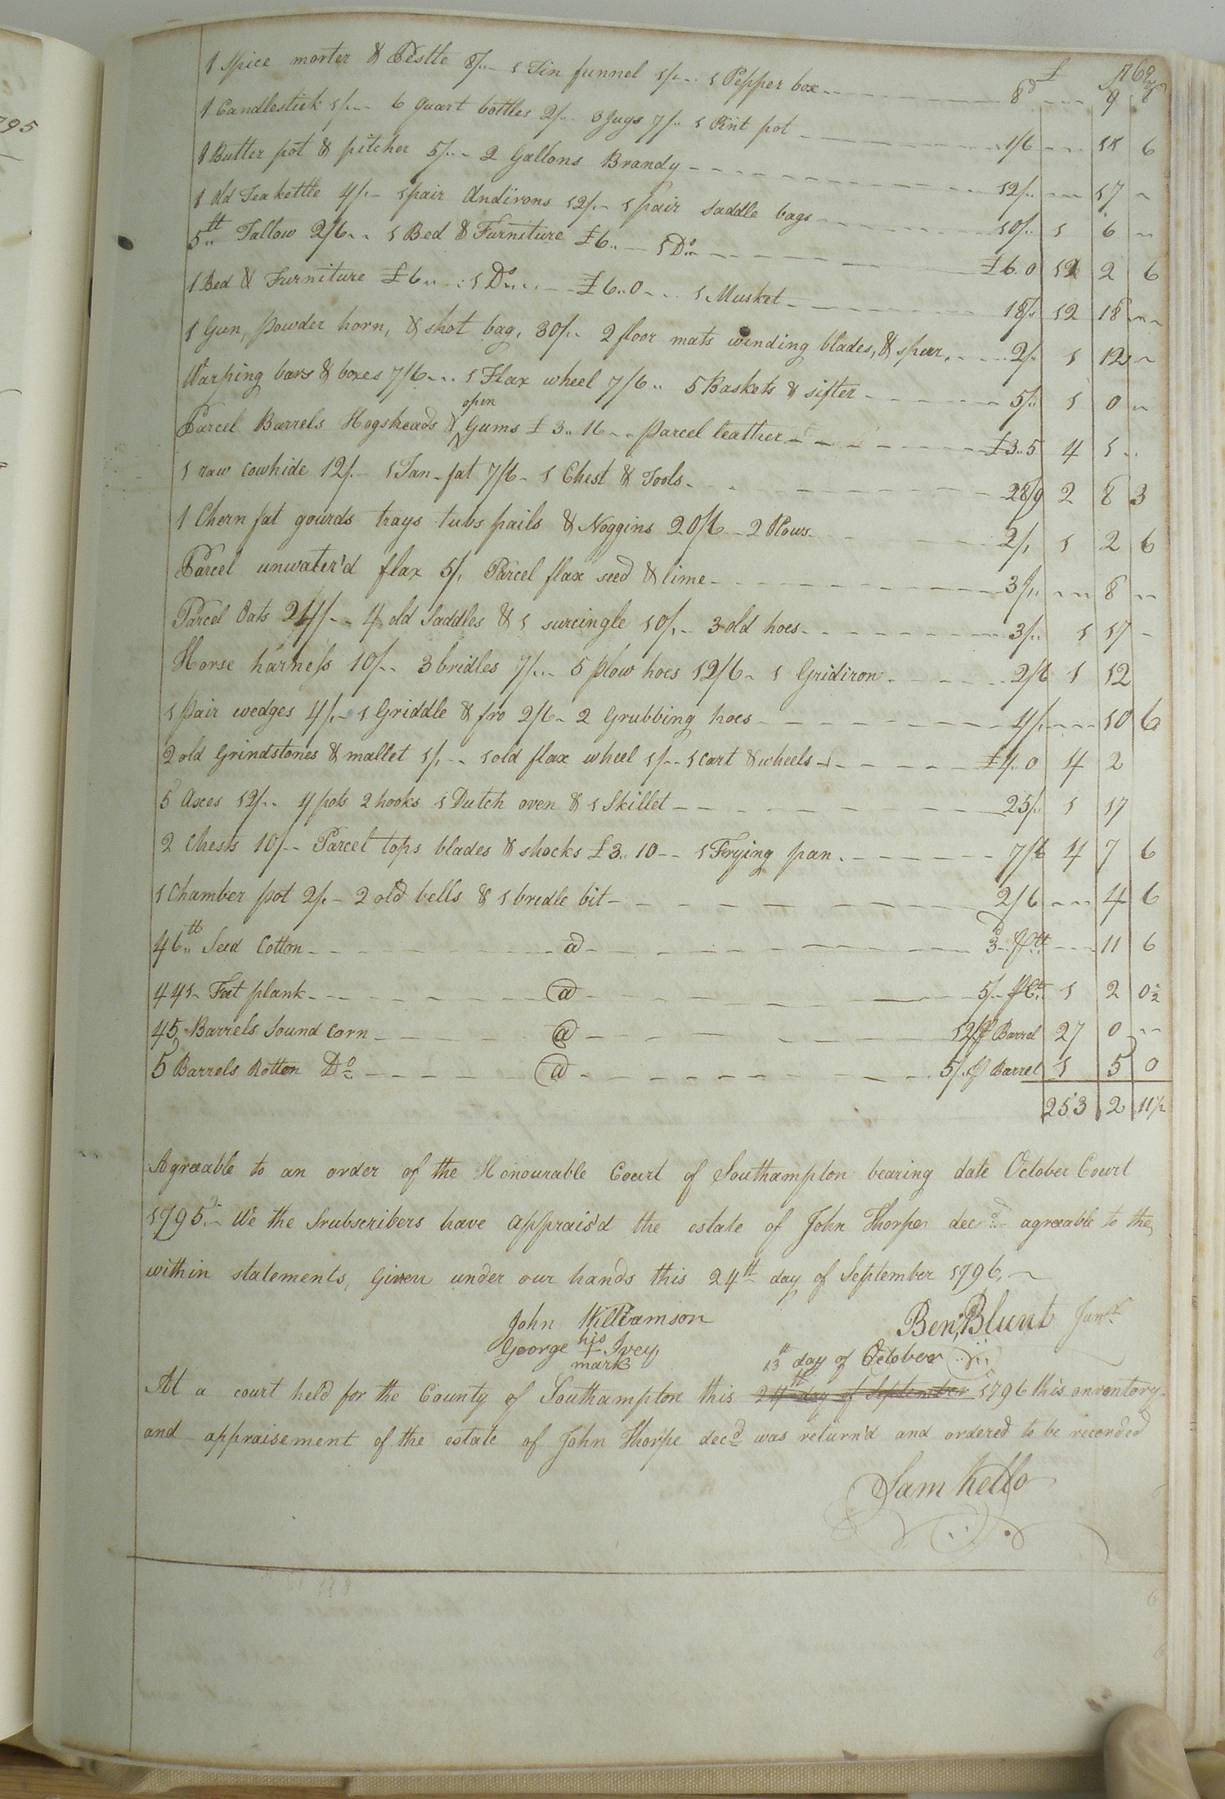 795
£ 769
1 Spice morter & Pestle 8/.. 1 Tin funnel 1/.. 1 Pepper box 8d 9 8
1 Candlestick 1/.. 6 quart bottles 2/.. 3 Jugs 7/.. 1 Pint pot 1/6 11 6
1 Butter pot & pitcher 5/.. 2 Gallons Brandy 12/.. 17
1 old Tea kettle 4/.. 1 pair Andirons 12/.. 1 pair saddle bags 10/.. 1 6
5 tt Tallow 2/6.. 1 Bed & Furniture £6.. 1 Do £6.0 12 2 6
1 Bed & Furniture £6.. 1 Do £6..0 1 Musket 18/. 12 18
1 Gun, powder horn, & shot bag, 30/.. 2 floor mats winding blades, & spear, 2/. 1 12
Warping bars & boxes 7/6 1 Flax wheel 7/6.. 5 Baskets & sifter 5/.. 1 0
Parcel Barrels Hogsheads & open Gums £3..16 parcel leather £3..5 4 1
1 raw cowhide 12/.. 1 Tan-fat 7/6 1 Chest & Tools 28/9 2 8 3
1 Chern fat gourds trays tubs pails & Noggins 20/6 2 Plows 2/. 1 2 6
Parcel unwater'd flax 5/, Parcel flax seed & lime 3/.. 8
Parcel Oats 24/.. 4 old Saddles & 1 surcingle 10/.. 3 old hoes 3/.. 1 17
Horse harness 10/.. 3 bridles 7/.. 5 plow hoes 12/6 1 Gridiron 2/6 1 12
1 pair wedges 4/.. 1 Griddle & fro 2/6 2 Grubbing hoes 4/. 10 6
2 old Grindstones & mallet 1/.. 1 old flax wheel 1/.. 1 Cart & wheels £4..0 4 2
5 Axes 12/.. 4 pots 2 hooks 1 Dutch oven & 1 Skillet 25/.. 1 17
2 Chests 10/.. Parcel tops blades & shocks £3..10 1 Frying pan. 7/6 4 7 6
1 Chamber pot 2/. 2 old bells & 1 bredle bit 2/6 4 6
46 tt Seed Cotton @ 3d ℔ tt 11 6
441 Feet plank @ 5/. ℔ Ct. 1 2 0½
45 Barrels Sound Corn @ 12/ ℔ Barrel 27 0
5 Barrels Rotten Do @ 5/. ℔ Barrel 1 5 0
253 2 11½
Agreeable to an order of the Honourable Court of Southampton bearing date October Court
1795 We the Srubscribers have apprais'd the estate of John Thorpe decd agreeable to the
within statements, Given under our hands this 24th day of September 1796,
John Williamson Benj. Blunt Junr.
George his + mark Ivey
13th day of October
At a court held for the County of Southampton this 24th day of September 1796 this inventory
and appraisement of the estate of John Thorpe decd was return'd and ordered to be recorded
Sam Kello